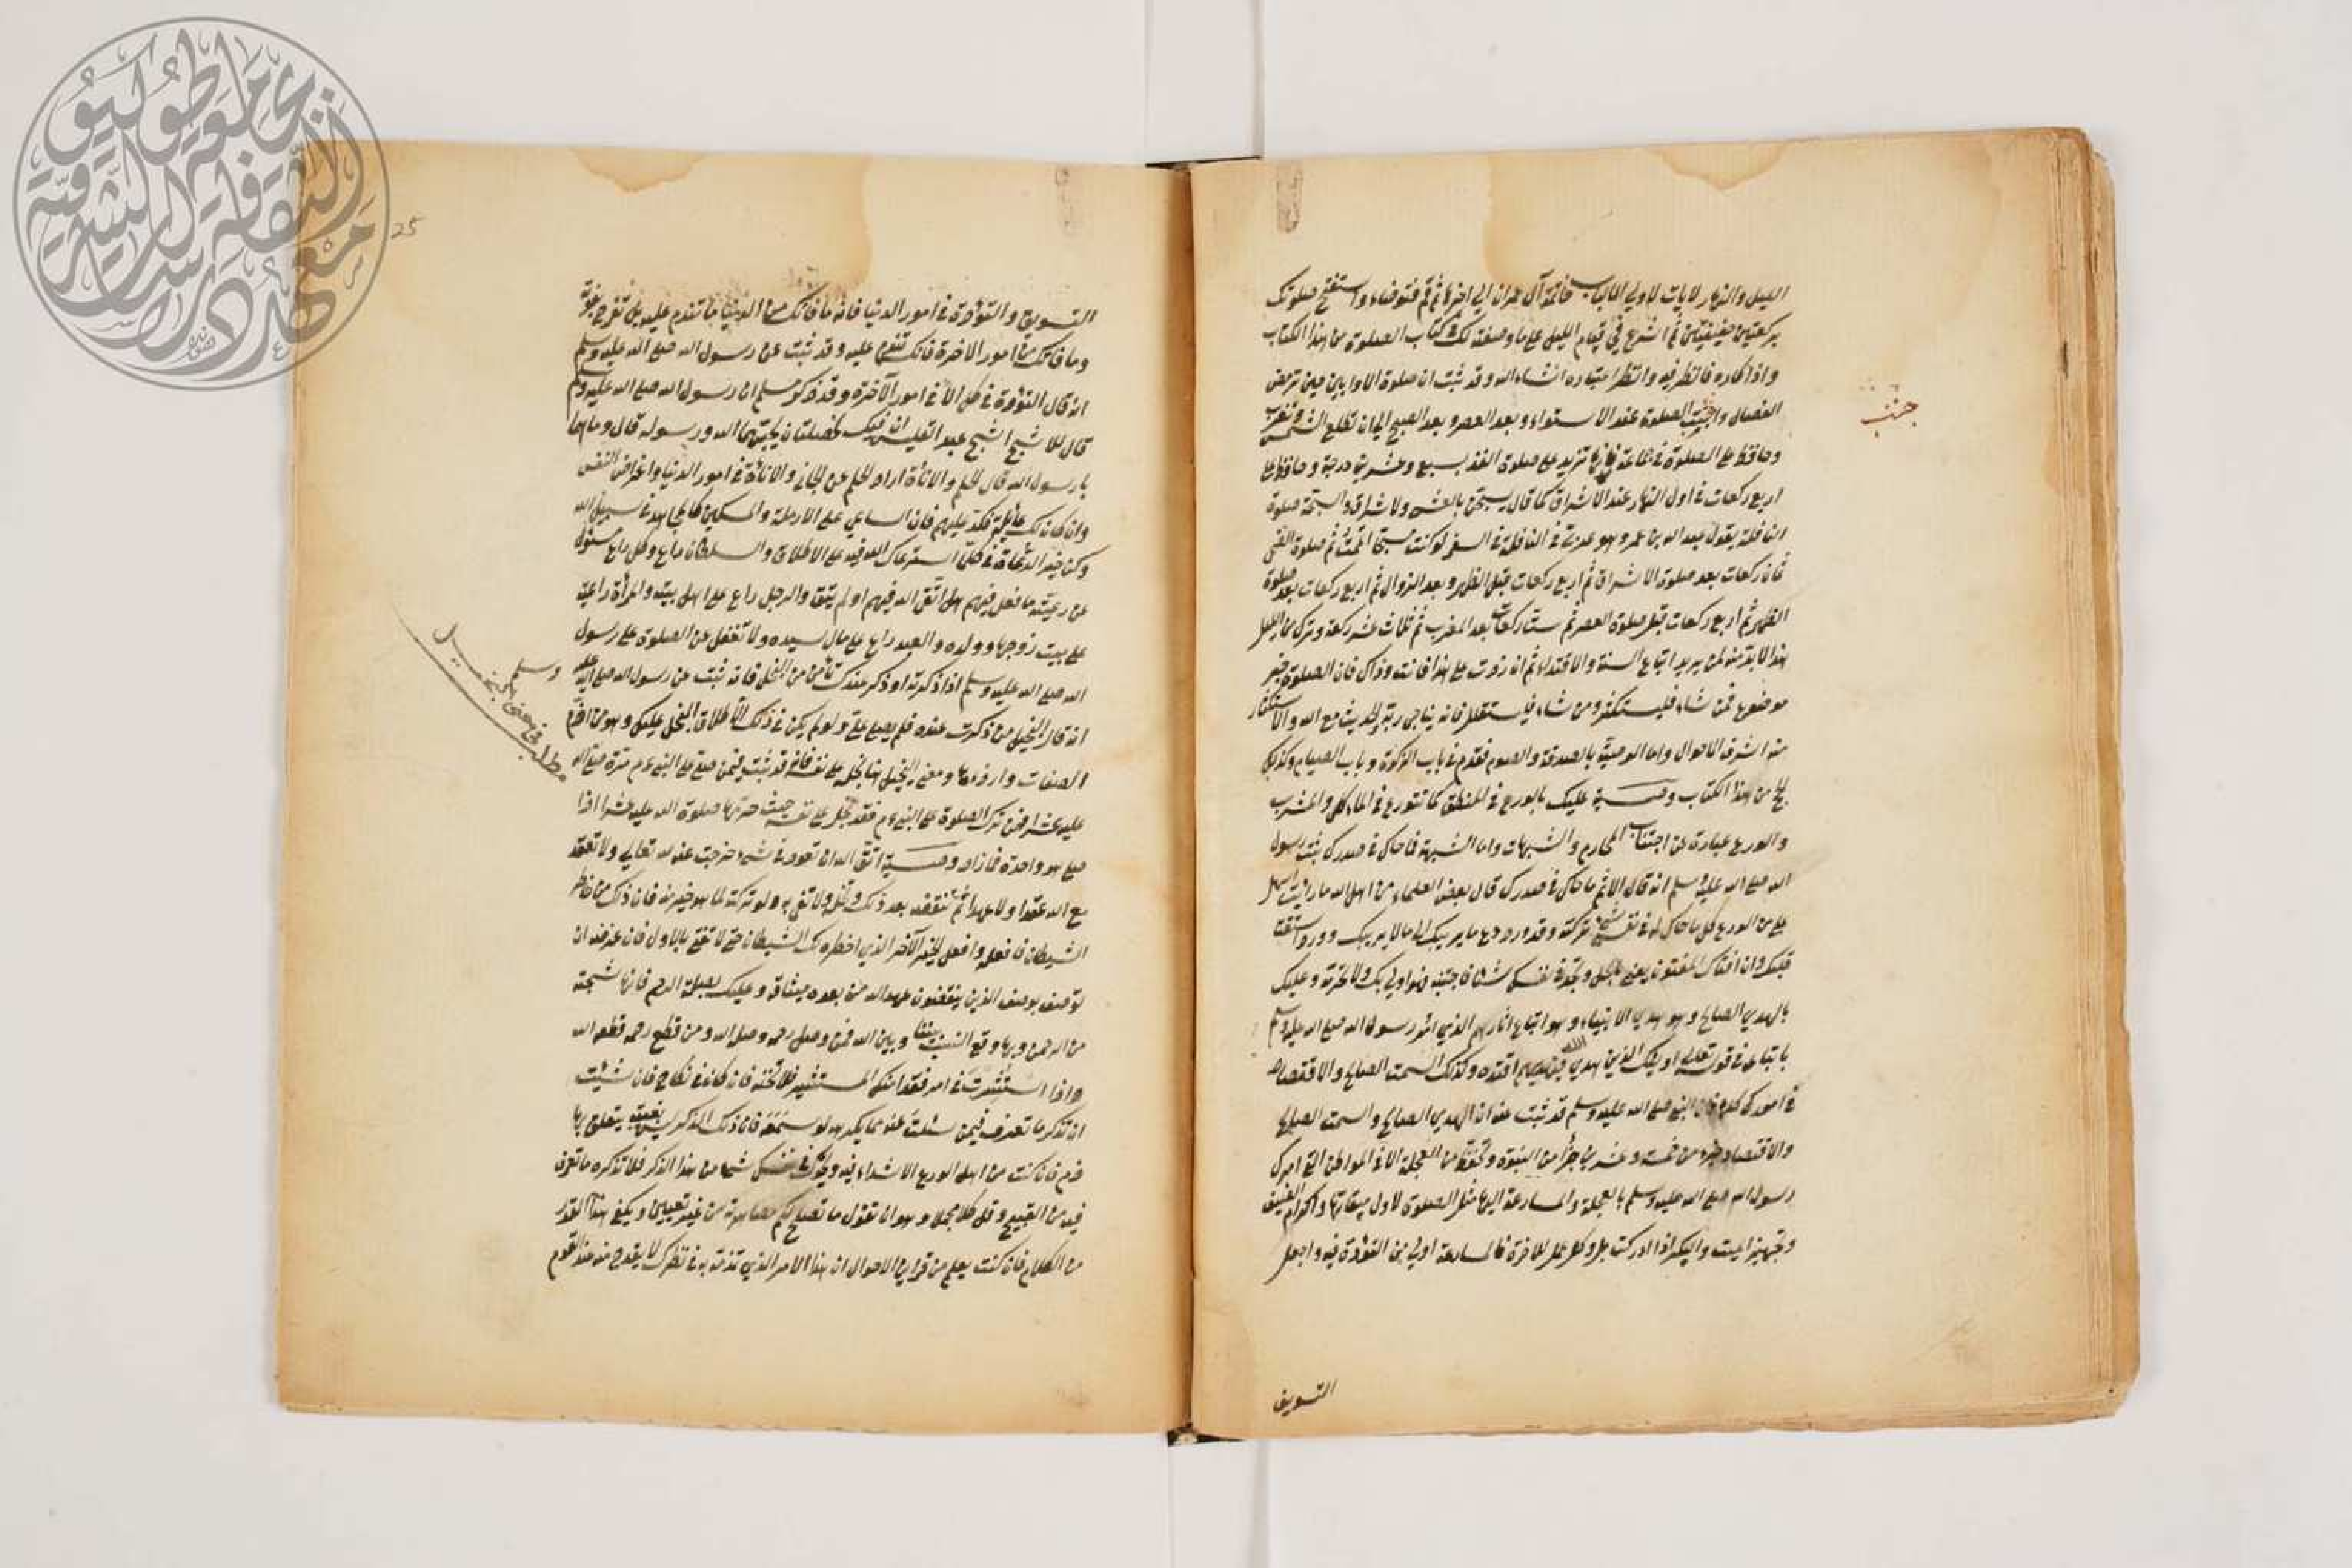 الليل والنهار لايات لاولي الالباب خاتمة آل عمران الي اخرها ثم قم فتوضاء واستفتح صلوتك
بركعتين خفيفتين ثم اشرع في قيام الليل على ما وصفته لك في كتاب الصلوة من هذا الكتاب
واذا كاره فانظر فيه وانتظر انشاء الله وقد ثبت ان صلوة الاوابين حين ترمض
الفصال واجتنب الصلوة عند الاستواء وبعد العصر وبعد الصبح الي ان تطلع الشمس وتغرب
جتنب
وحافظ على الصلوة في جماعة فانها تزيد على صلوة الفذ بسبع وعشرين درجة وحافظ على
اربع ركعات في اول النهار عند الاشراق كما قال يسبحن بالعشي والاشراق والسبحة صلوة
النافلة يقول عبد الله بن عمر وهو عربي في النافلة في السفر لو كنت مسبحا اتممت ثم صلوة الضحى
ثمان ركعات بعد صلوة الاشراق ثم اربع ركعات قبل الظهر وبعد الزوال ثم اربع ركعات بعد صلوة
الظهر ثم اربع ركعات قبل صلوة العصر ثم ست ركعات بعد المغرب ثم ثلاث عشر ركعة وترك من الليل
هذا لا بد منه لمن يريد اتباع السنة والاقتداء ثم ان زدت على هذا فانت وذاك فان الصلوة خير
موضوع فمن شاء فليستكثر ومن شاء فليستقلل فانه يناجي ربه والحديث مع الله والاستكثار
منه اشرف الاحوال واما الوصية بالصدقة والصوم فتقدم في باب الزكوة وباب الصيام وكذلك
الحج من هذا الكتاب وصية عليك بالورع في المنطق كما تتورع في الماءكل والمشرب
والورع عبارة عن اجتناب المحارم والشبهات واما الشبهة فما حاك في صدرك ثبت رسول
الله صلى الله عليه وسلم انه قال الاثم ما حاك في صدرك قال بعض العلماء من اهل الله ما رايت اسهل
على من الورع كل ما حاك له في نفسي شيء تركته وقد ورد دع ما يريبك الى ما لا يريبك وورد استفت
قلبك وان افتاك المفتون يعني بالحل وتجد في نفسك شيئا فاجتنبه فهو اولي بك ولا تحرمه وعليك
بالهدي الصالح وهو هدي الانبياء وهو اتباع اثارهم الذي امر رسول الله صلى الله عليه وسلم
باتباعه في قوله تعالى اوليك الذين هدي الله فبهديهم اقتده وكذلك السمت الصالح والاقتصاد
في امورك كلها فان النبي صلى الله عليه وسلم قد ثبت عنه ان الهدي الصالح والسمت الصالح
والاقتصاد جزء من خمسة وعشرين جزأ من النبوة وتحفظ من العجلة الا في المواطن التي امرك
رسول الله صلى الله عليه وسلم بالعجلة والمسارعة اليها مثل الصلوة لاول ميقاتها واكرام الضيف
وتجهيز الميت والبكر اذا ادركت بل وكل عمل للاخرة فالمسارعة اولي من التؤدة فيه واجعل
التسويف
25
التسويف والتؤدة في امور الدنيا فانه ما فاتك من الدنيا ما تندم عليه بل تفرح بفوته
وما فاتك من امور الاخرة فانك تندم عليه وقد ثبت عن رسول الله صلى الله عليه وسلم
انه قال التؤدة في كل الا في امور الآخرة وقد ذكر مسلم ان رسول الله صلى الله عليه وسلم
قال للاشج اشج عبد القيس ان فيك لخصلتان يحبهما الله ورسوله قال وما هما
يا رسول الله قال الحلم والاناءة اراد الحلم عن الجاني والاناءة في امور الدنيا واغراض النفس
وان كان لك عائلة فكد عليهم فان الساعي على الارملة والمسكين كالمجاهد في سبيل الله
وكن خير الرعاة في كل ما استرعاك الله فيه على الاطلاق والسلطان راع وكل راع مسئول
عن رعيته ما فعل فيهم هل اتقى الله فيهم او لم يتق والرجل راع على اهل بيته والمرأة راعية
على بيت زوجها وولده والعبد راع على مال سيده ولا تغفل عن الصلوة على رسول
الله صلى الله عليه وسلم اذا ذكرته او ذكر عندك تأمن من البخل فانه ثبت عن رسول الله صلى الله عليه
وسلم
مطلب في معنى البخيل
انه قال البخيل من ذكرت عنده فلم يصل علي ولو لم يكن في ذلك الا اطلاق البخل عليك وهو من اذم
الصفات وارذلها ومعنى البخيل هنا بخله على نفسه فانه قد ثبت فيمن صلى على النبي م مرة صلى الله
عليه عشرا فمن ترك الصلوة على النبي م فقد بخل على نفسه حيث حرمها صلوة الله عليه عشرا اذا
صلى هو واحدة فما زاد وصية اتق الله ان تعود في شيء خرجت عنه لله تعالى ولا تعقد
مع الله عقدا ولا عهدا ثم تنقضه بعد ذلك وتحله ولا تفي به ولو تركته لما هو خير منه فان ذلك من خاطر
الشيطان فافعله وافعل الخير الآخر الذي اخطره لك الشيطان حتى لا تفي بالاول فان غرضه ان
توصف بوصف الذين ينقضون عهد الله من بعد ميثاقه وعليك بصلة الرحم فانها شجنة
من الرحمن وبها وقع النسب بيننا وبين الله فمن وصل رحمه وصله الله ومن قطع رحمه قطعه الله
واذا استشرت في امر فقد امنك المستشير فلا تخنه فان كان في نكاح فان شئت
ان تذكر ما تعرف فيمن سئلت عنه مما يكرهه لو سمعه فان ذلك الذكر ليس بغيبة يتعلق بها
ذم فان كنت من اهل الورع الاشداء فيه ويحوك في نفسك شيئا من هذا الذكر فلا تذكره ما تعرف
فيه من القبيح وقل كلاما مجملا وهو ان تقول ما تصلح لكم مصاهرته من غير تعيين ويكفي هذا القدر
من الكلام فان كنت يعلم من قراين الاحوال ان هذا الامر الذي تذمه به في نظرك لا يقدح منه عند القوم